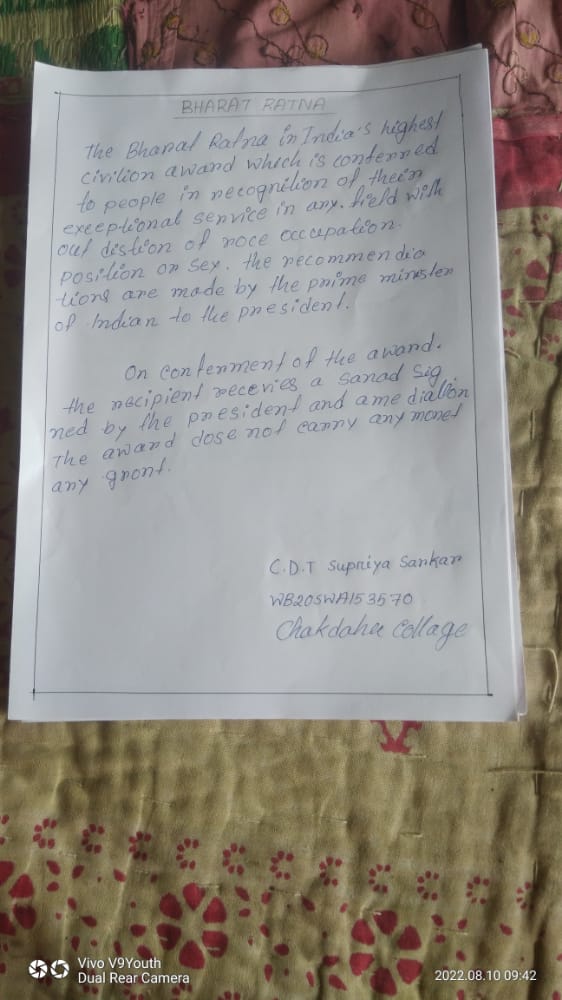 BHARAT RATNA
The Bharat Ratna in India's highest
civilion award which is conferred
to people in recognition of their
exceptional service in any. field with
out distion of roce occupation.
position or sex. the recommendia
tions are made by the prime minister
of Indian to the president.
On conferment of the award.
the recipient recevies a sanad sig
ned by the president and ame diallion
The award dose not carry any monet
any gront.
C.D.T Supriya Sarkar
WB20SWA153570
Chakdaha Collage
Vivo V9Youth
Dual Rear Camera
2022.08.10 09:42